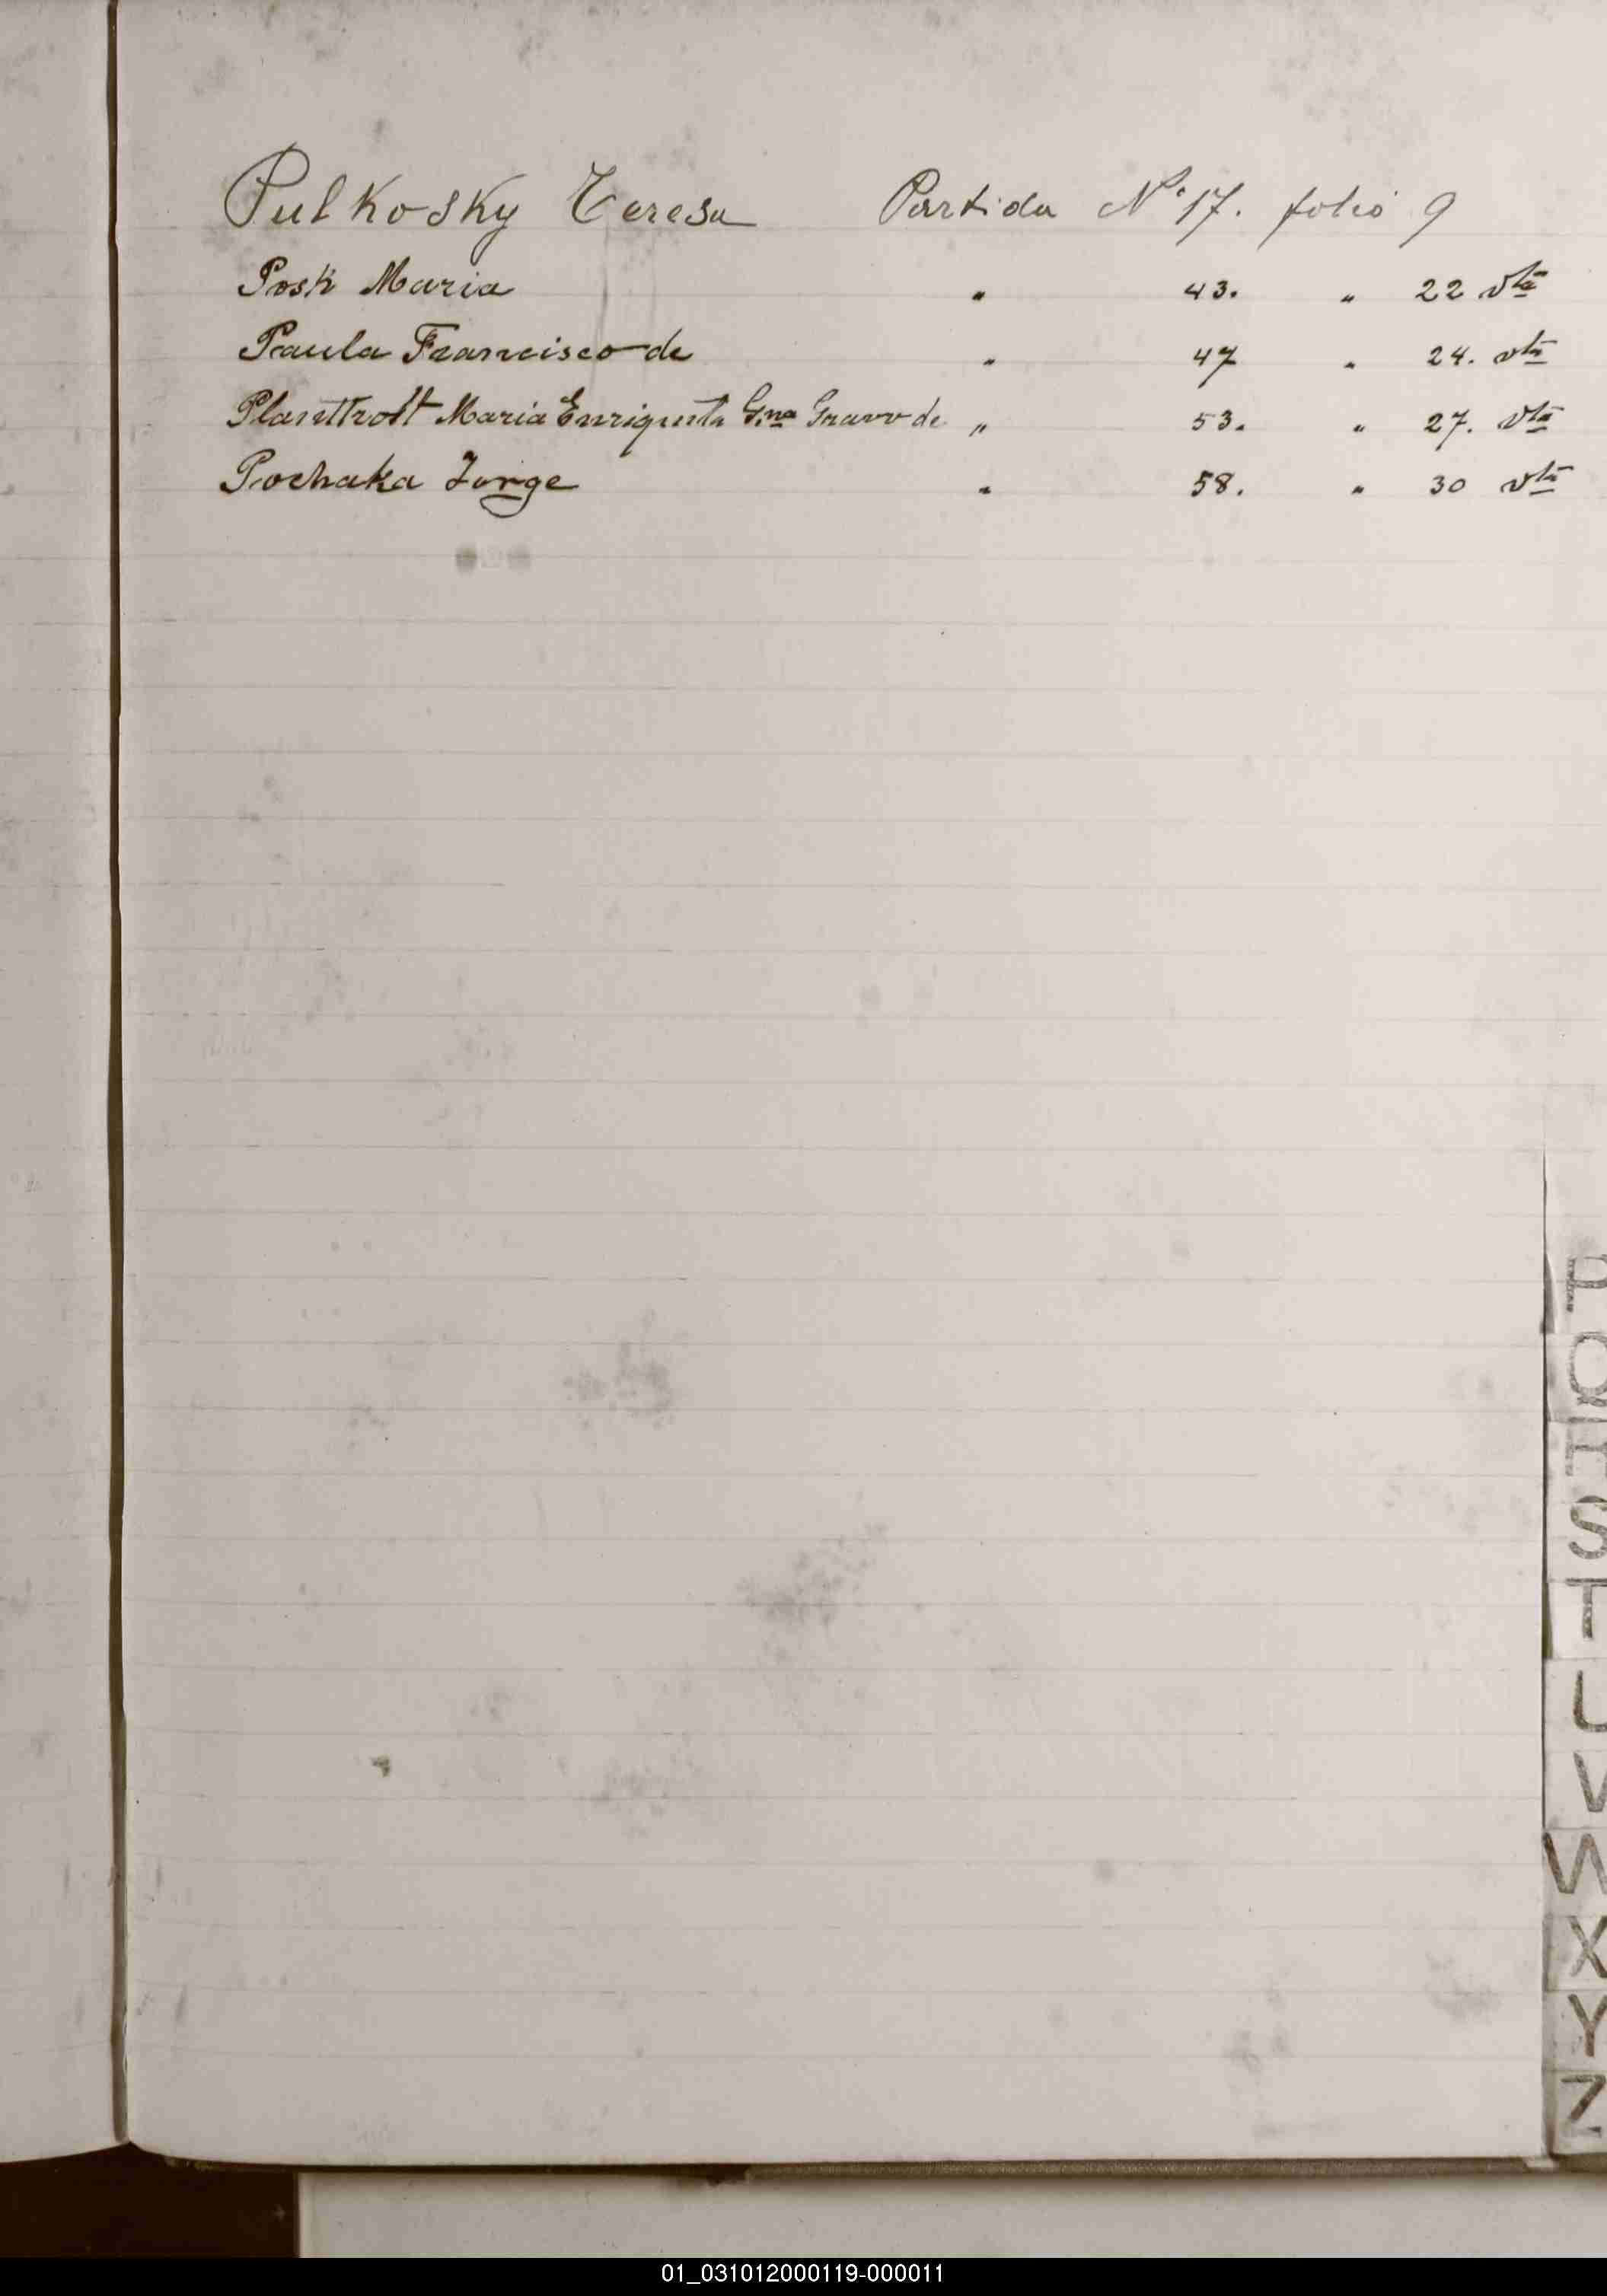 Pulkosky Teresa Partida Nº 17. folio 9
Posk Maria " 43. " 22 vta
Paula Francisco de " 47 " 24. vta
Planttrott Maria Enriqueta Gna de " 53. " 27. vta
Pochaka Jorge " 58. " 30 vta
P
Q
R
S
T
U
V
W
X
Y
Z
01_031012000119-000011